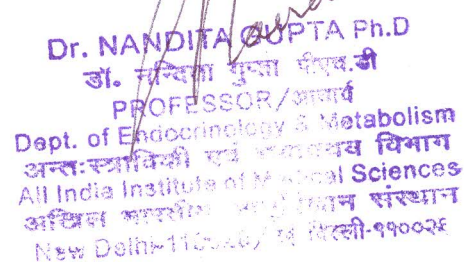 Dr. NANDITA GUPTA Ph.D
डॉ. नन्दिता गुप्ता पीएच.डी
PROFESSOR/आचार्य
Dept. of Endocrinology & Metabolism
अन्तःस्त्राविकी एवं चयापचय विभाग
All India Institute of Medical Sciences
अखिल भारतीय संस्थान
New Delhi-110029/ दिल्ली-११००२९